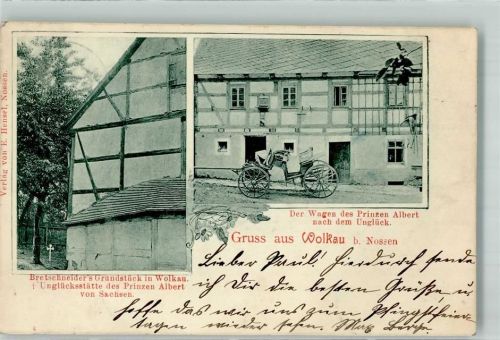 Verlag von E. Hensel, Nossen.
Der Wagen des Prinzen Albert
nach dem Unglück.
Gruss aus Wolkau b. Nossen
Bretschneider's Grundstück in Wolkau.
† Unglücksstätte des Prinzen Albert
von Sachsen.
Lieber Paul! Hierdurch sende
ich Dir die besten Grüße, u
hoffe das wir uns zum Pfingstfeier
tagen wieder sehn. Max